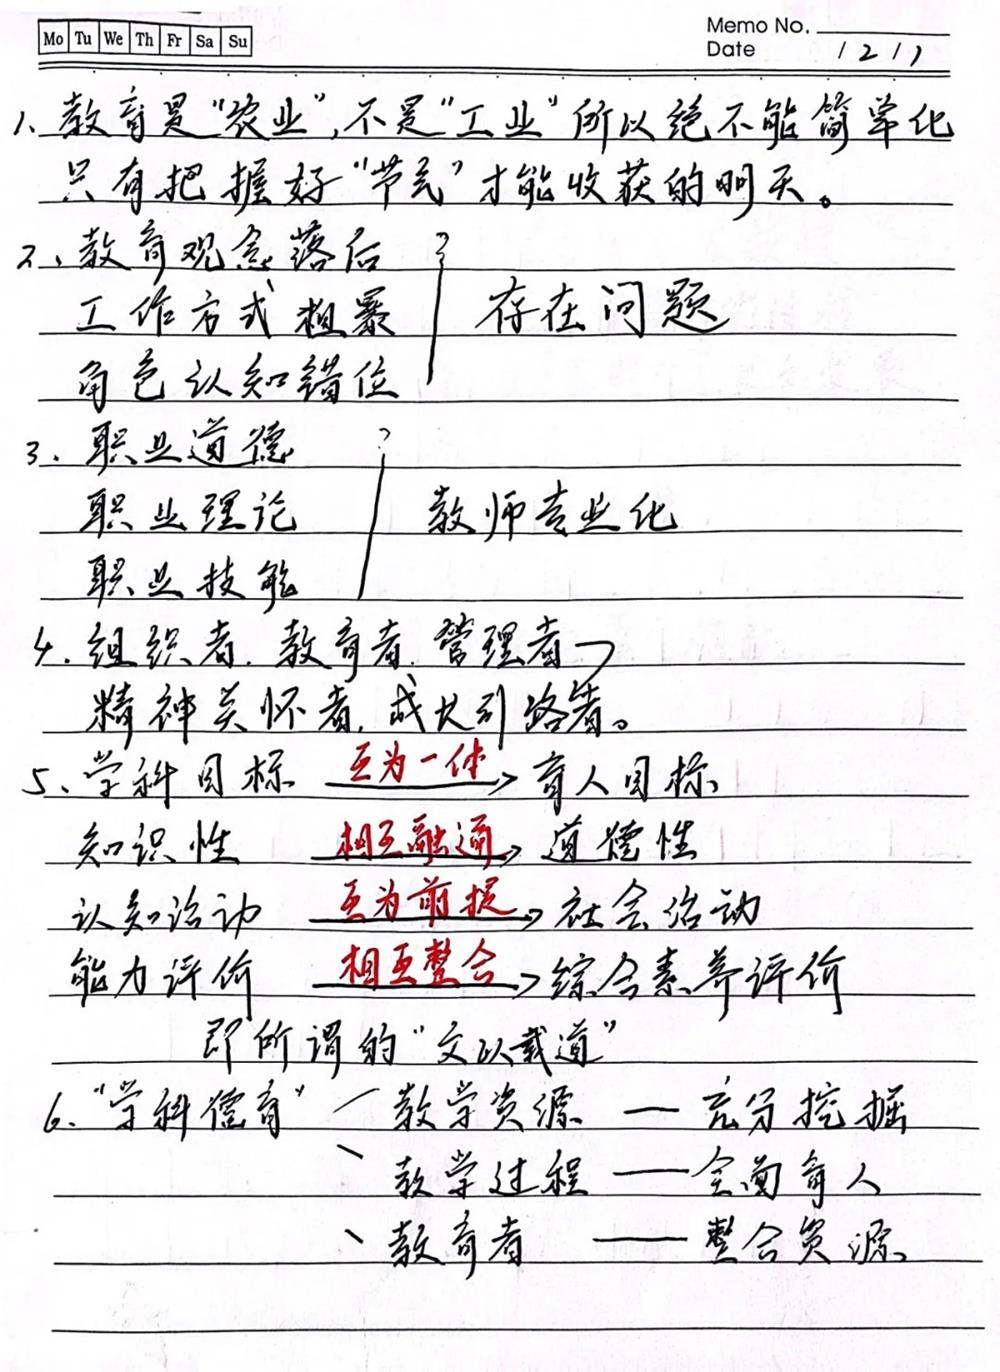 Mo Tu We Th Fr Sa Su
Memo No.
Date 1 2 1 7
1、教育是“农业”,不是“工业”所以绝不能简单化
只有把握好“节气”才能收获的明天。
2、教育观念落后
工作方式粗暴 存在问题
角色认知错位
3、职业道德
职业理论 教师专业化
职业技能
4.组织者.教育者.管理者
精神关怀者.成长引路者。
5、学科目标 互为一体 育人目标
知识性 相互融通 道德性
认知活动 互为前提 社会活动
能力评价 相互整合 综合素养评价
即所谓的“文以载道”
6.“学科德育” 教学资源 — 充分挖掘
教学过程 — 全面育人
教育者 — 整合资源